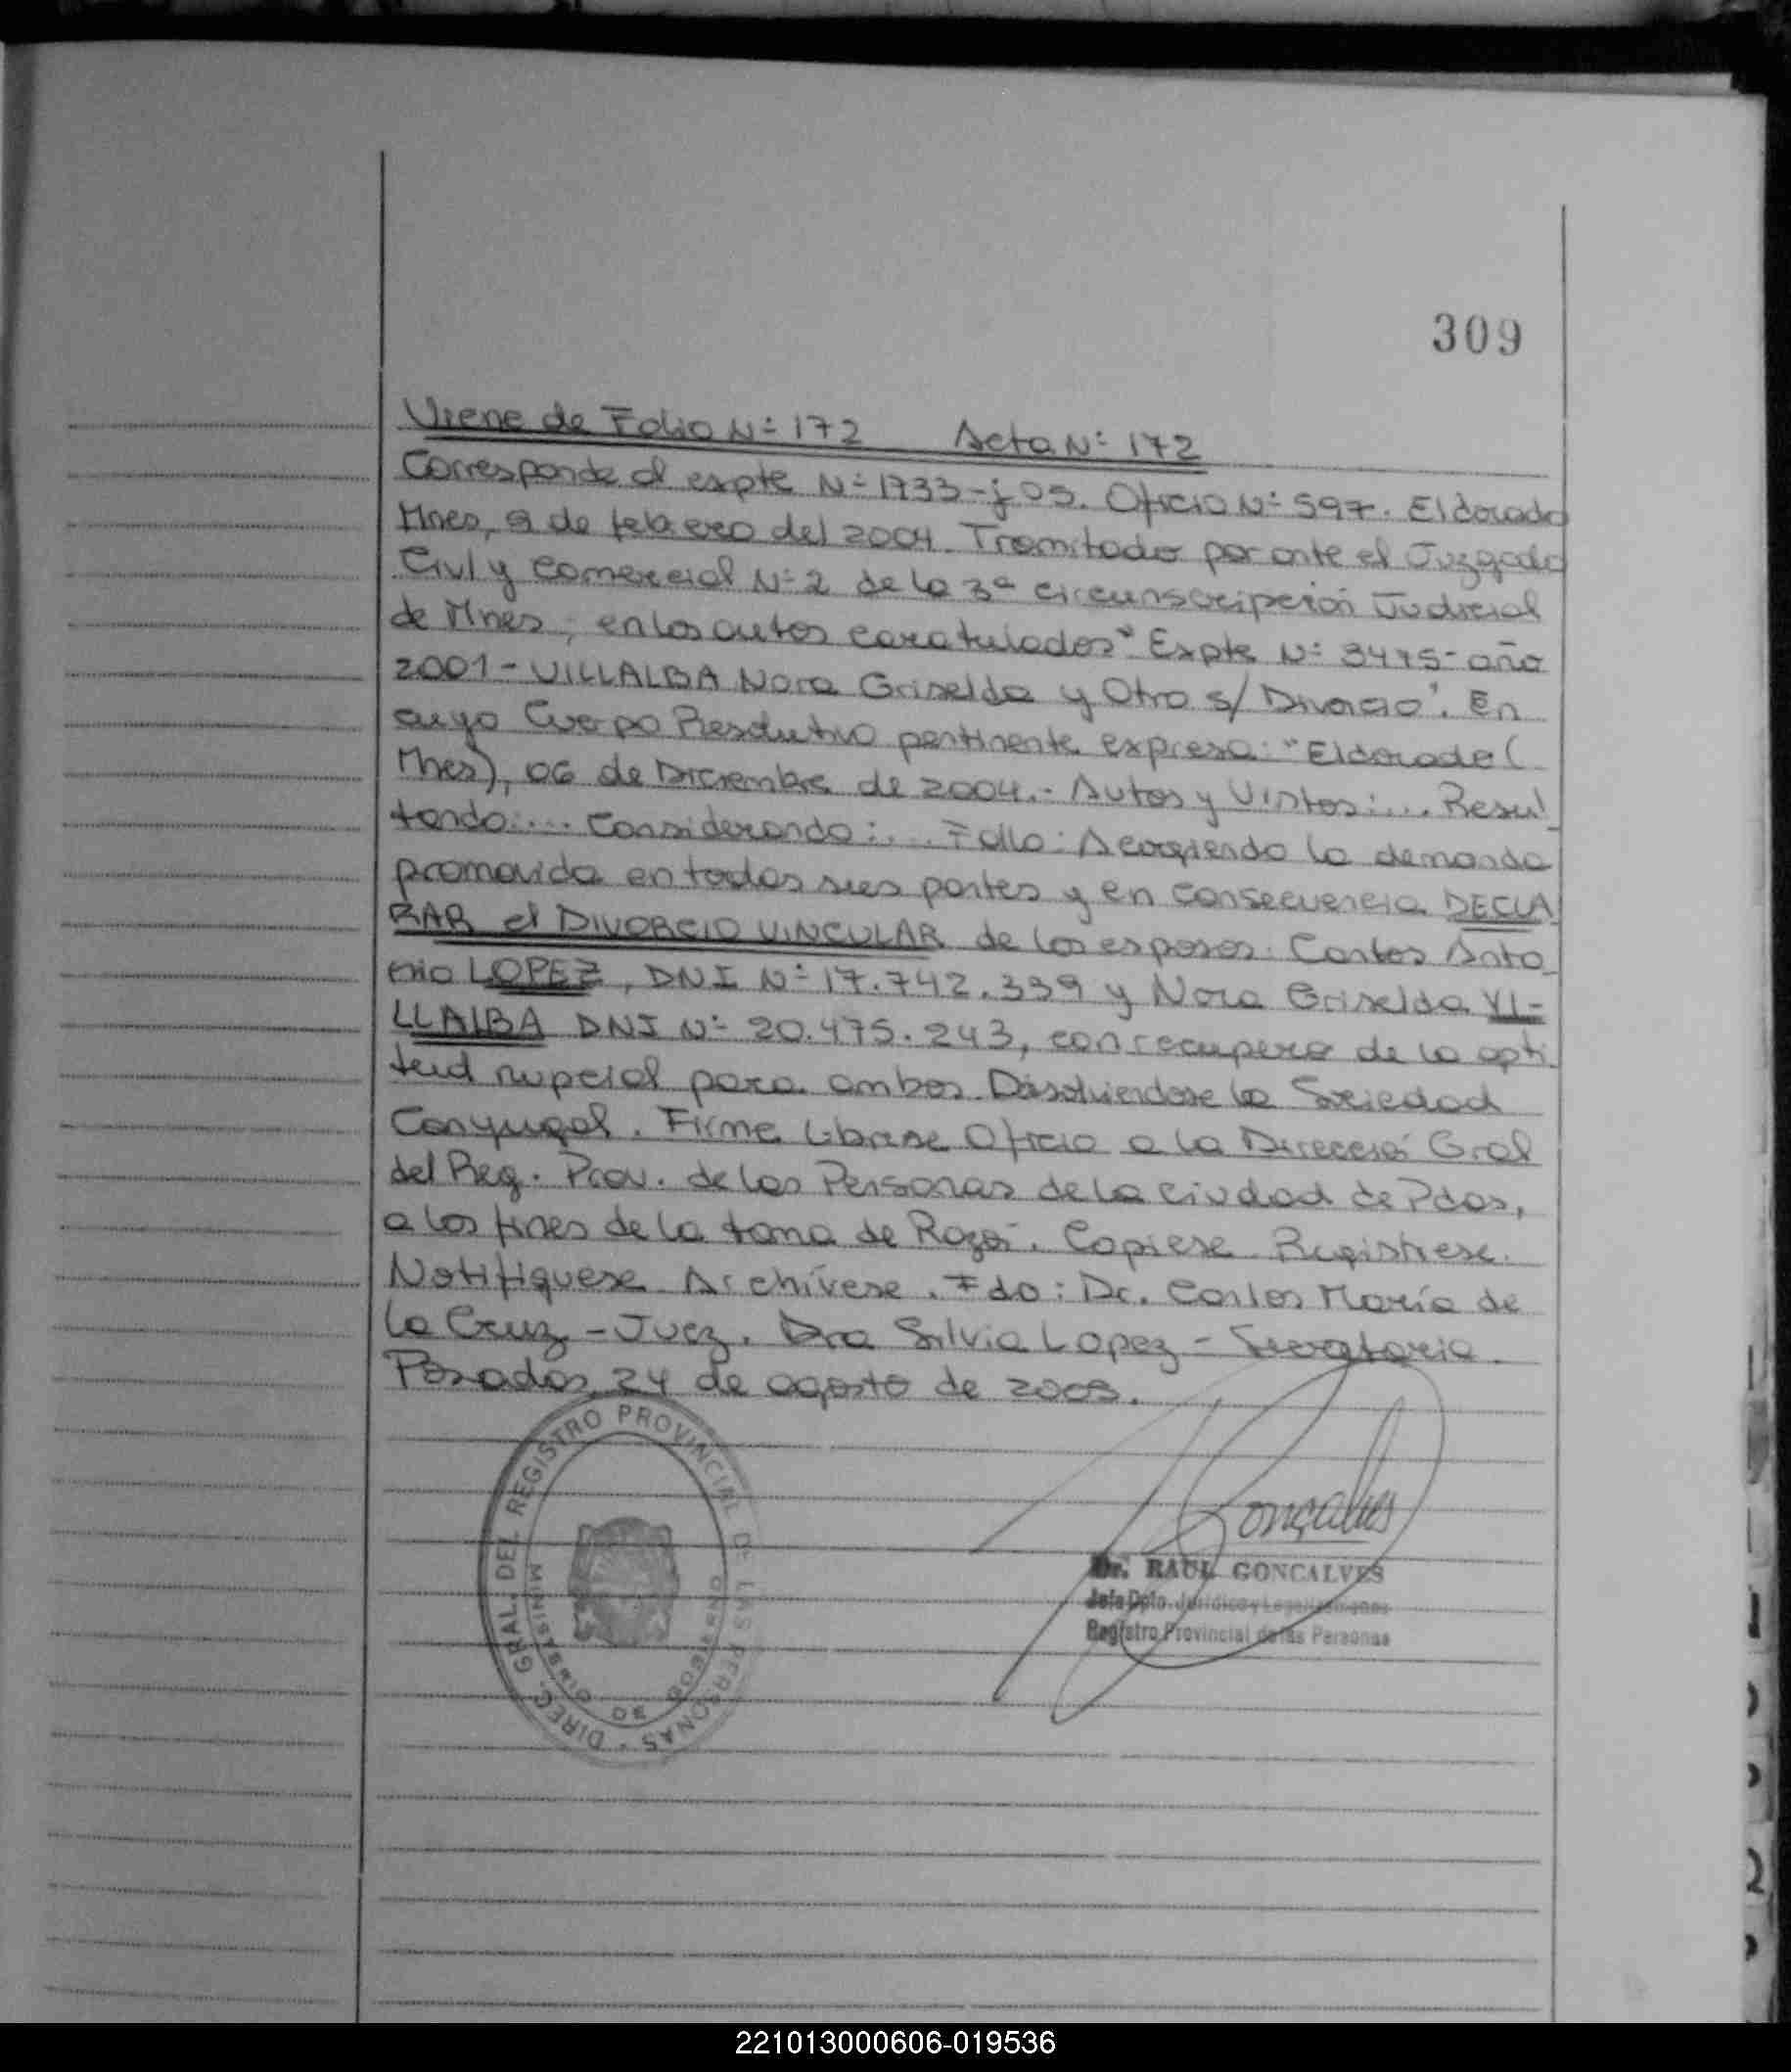 309
Viene de Folio Nº 172 Acta Nº 172
Corresponde al expte Nº 1733-j 05. Oficio Nº 597. Eldorado
Mnes, 9 de febrero del 2004. Tramitado por ante el Juzgado
Civil y Comercial Nº 2 de la 3ª circunscripción Judicial
de Mnes, en los autos caratulados "Expte Nº 3475-año
2001 - VILLALBA Nora Griselda y Otro s/ Divorcio". En
cuyo Cuerpo Resolutivo pertinente expresa: "Eldorado (
Mnes), 06 de Diciembre de 2004.- Autos y Vistos:... Resul
tando:... Considerando:... Fallo: Acogiendo la demanda
promovida en todas sus partes y en consecuencia DECLA
RAR el DIVORCIO VINCULAR de los esposos: Carlos Anto
nio LOPEZ, DNI Nº 17.742.339 y Nora Griselda VI-
LLALBA DNI Nº 20.475.243, con recupero de la apti
tud nupcial para ambos. Disolviendose la Sociedad
Conyugal. Firme Librese Oficio a la Direcció Gral
del Reg. Prov. de las Personas de la ciudad de Pdas,
a los fines de la toma de Razó. Copiese Registrese.
Notifiquese Archívese. Fdo: Dr. Carlos María de
la Cruz - Juez. Dra Silvia Lopez - Secretaria.
Posadas, 24 de agosto de 2005.
DIREC. GRAL. DEL REGISTRO PROVINCIAL DE LAS PERSONAS
MINISTERIO DE GOBIERNO
Gonçalves
Dr. RAUL GONCALVES
Jefe Dpto. Jurídico y Legalizaciones
Registro Provincial de las Personas
221013000606-019536